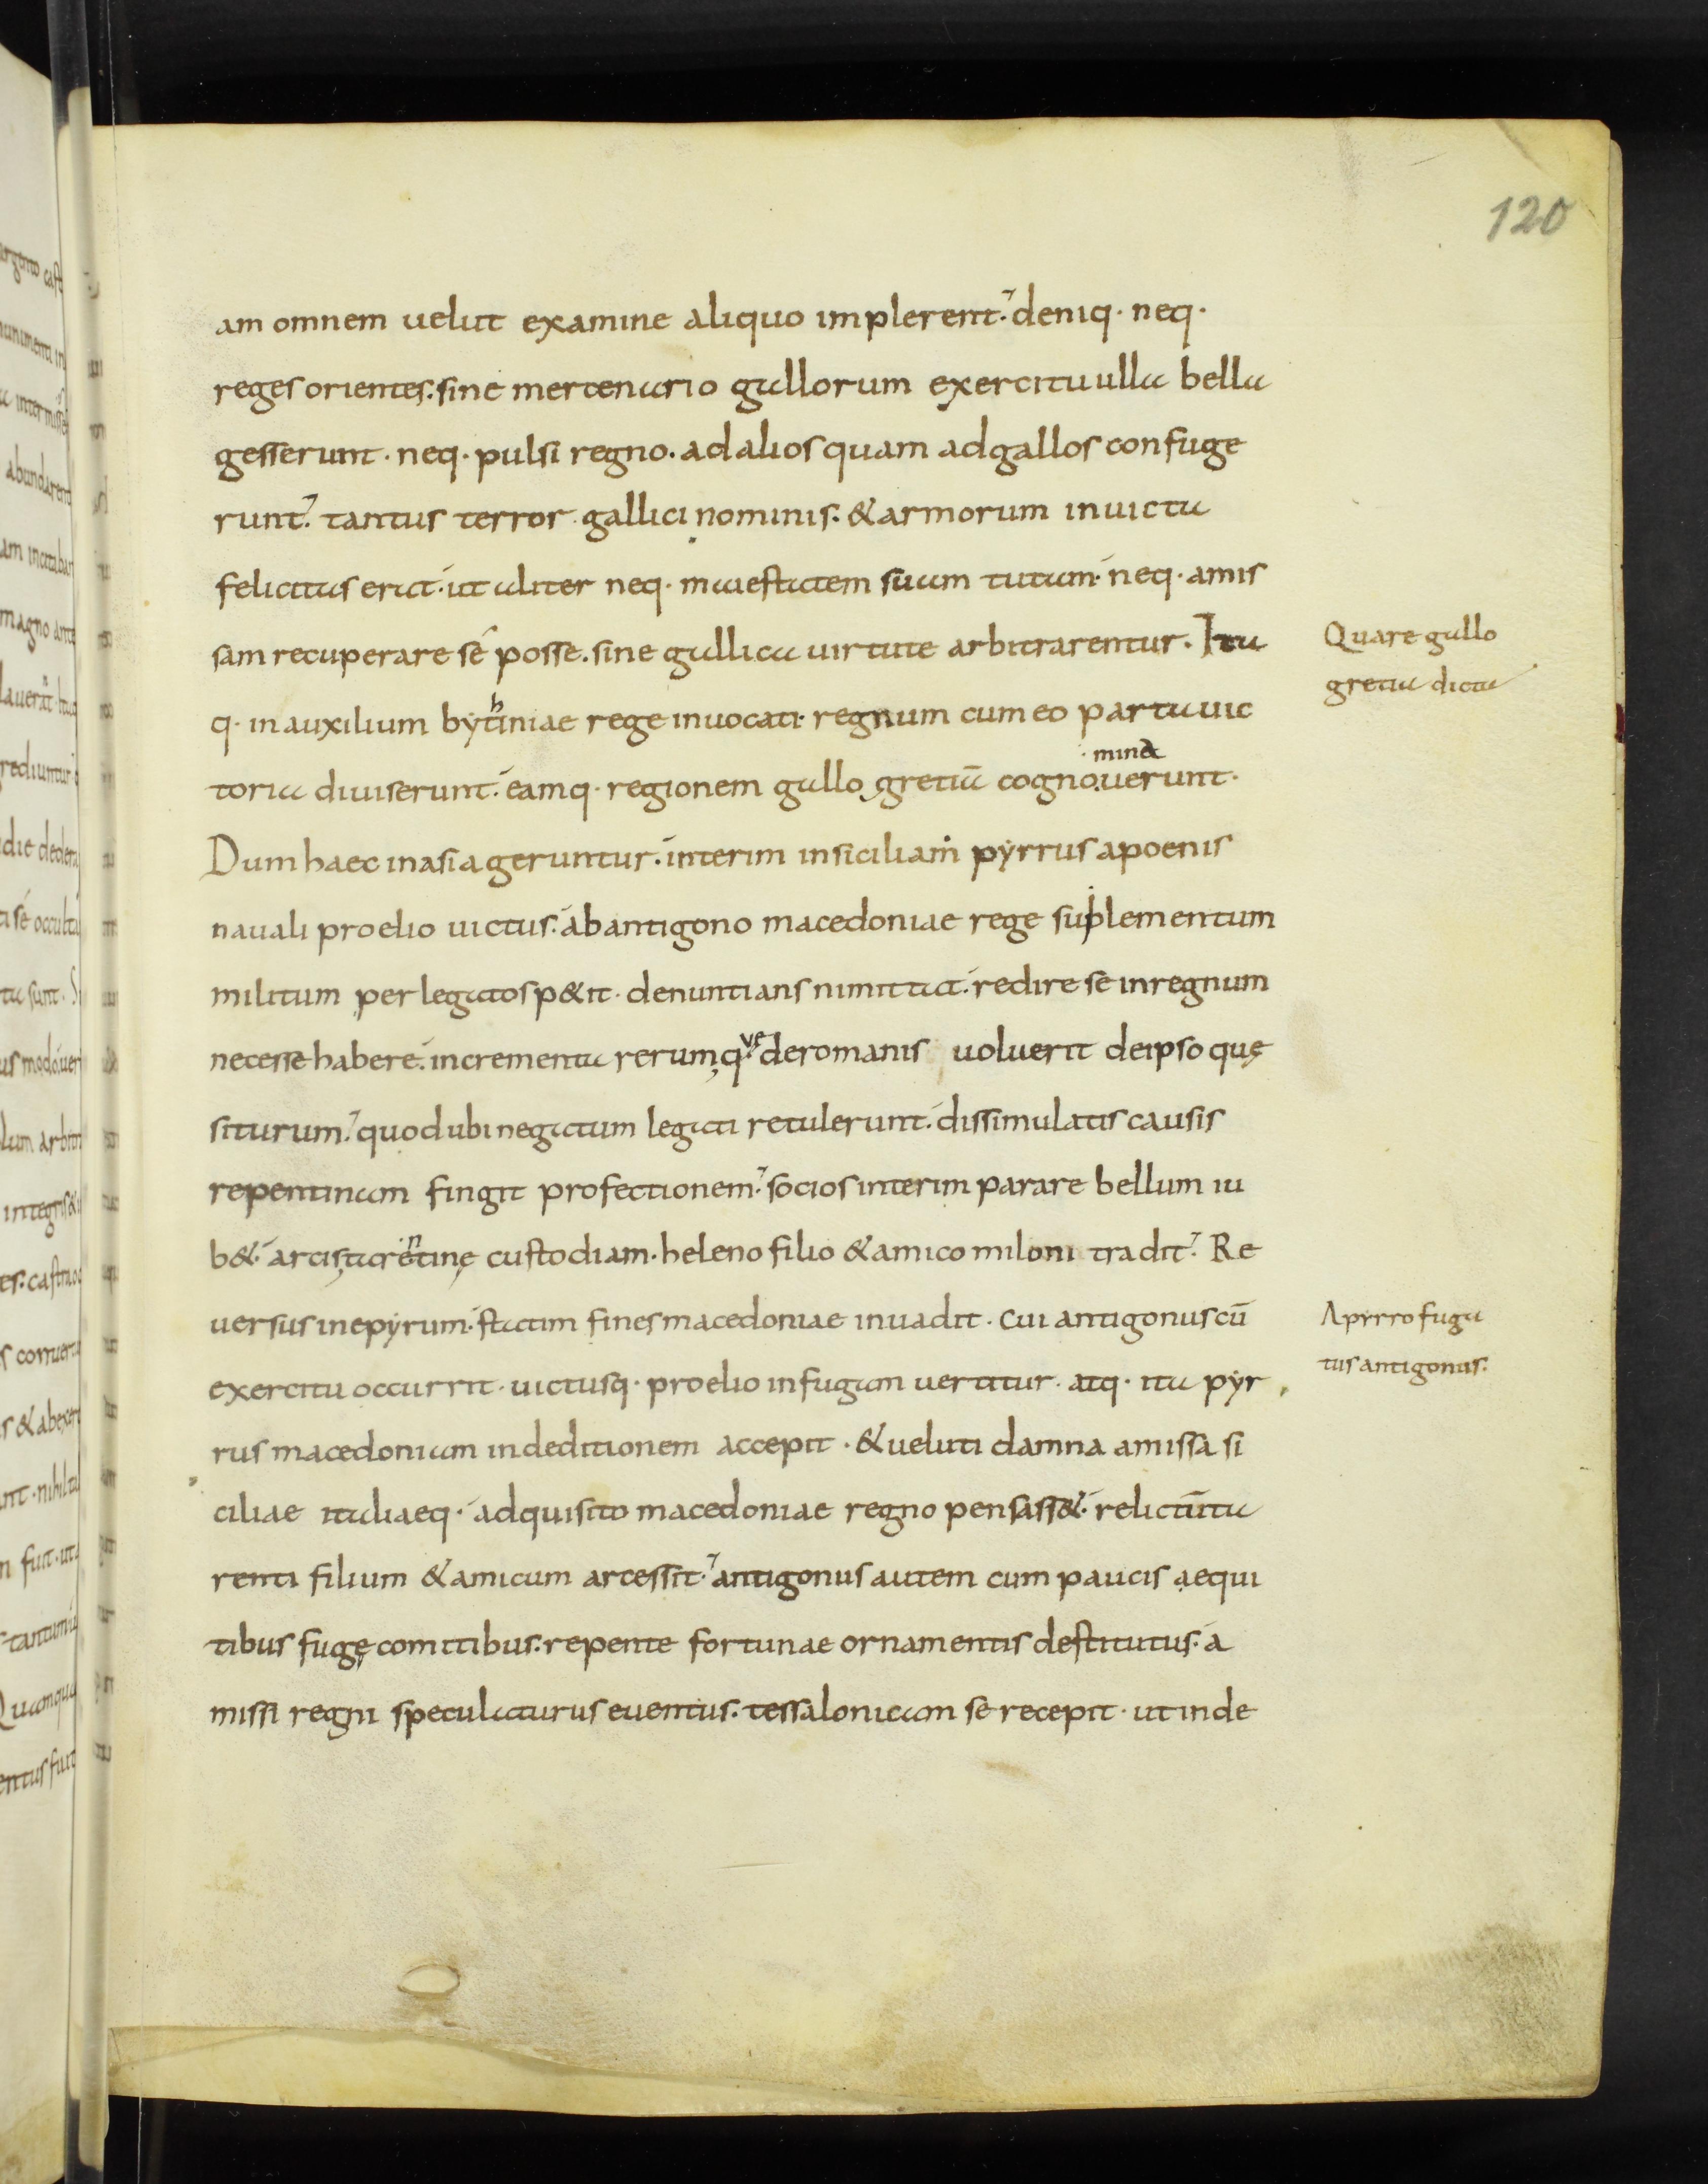 120
am omnem uelut examine aliquo implerent. deniq· neq·
reges orientes. sine mercenario gallorum exercitu ulla bella
gesserunt· neq· pulsi regno. ad alios quam ad gallos confuge
runt. tantus terror gallici nominis. & armorum inuicta
felicitas erat· ut aliter neq· maiestatem suam tutam· neq· amis
sam recuperare sé posse. sine gallica uirtute arbitrarentur. Ita
q· in auxilium bythiniae rege inuocati· regnum cum eo parta uic
toria diuiserunt. eamq· regionem gallo gretiā cognouerunt·
·mina&
Dum haec in asia geruntur. interim in siciliam pyrrus a poenis
nauali proelio uictus. ab antigono macedoniae rege suplementum
militum per legatos p&it· denuntians ni mittat. redire se in regnum
necesse habere. incrementa rerum q·ue de romanis uoluerit de ipso quę
siturum. quod ubi negatum legati retulerunt. dissimulatis causis
repentinam fingit profectionem. socios interim parare bellum iu
b&. arcis tarentinę custodiam. heleno filio & amico miloni tradit. Re
uersus in epyrum. statim fines macedoniae inuadit. cui antigonus cū
exercitu occurrit· uictusq· proelio in fugam uertitur· atq· ita pyr
rus macedoniam in deditionem accepit· & ueluti damna amissa si
ciliae italiaeq· adquisito macedoniae regno pensass&. relictū ta
renti filium & amicum arcessit. antigonus autem cum paucis aequi
tibus fugę comitibus. repente fortunae ornamentis destitutus. a
missi regni speculaturus euentus. tessalonicam se recepit· ut inde
Quare gallo
gretia dicta
A pyrro fuga
tus antigonus.